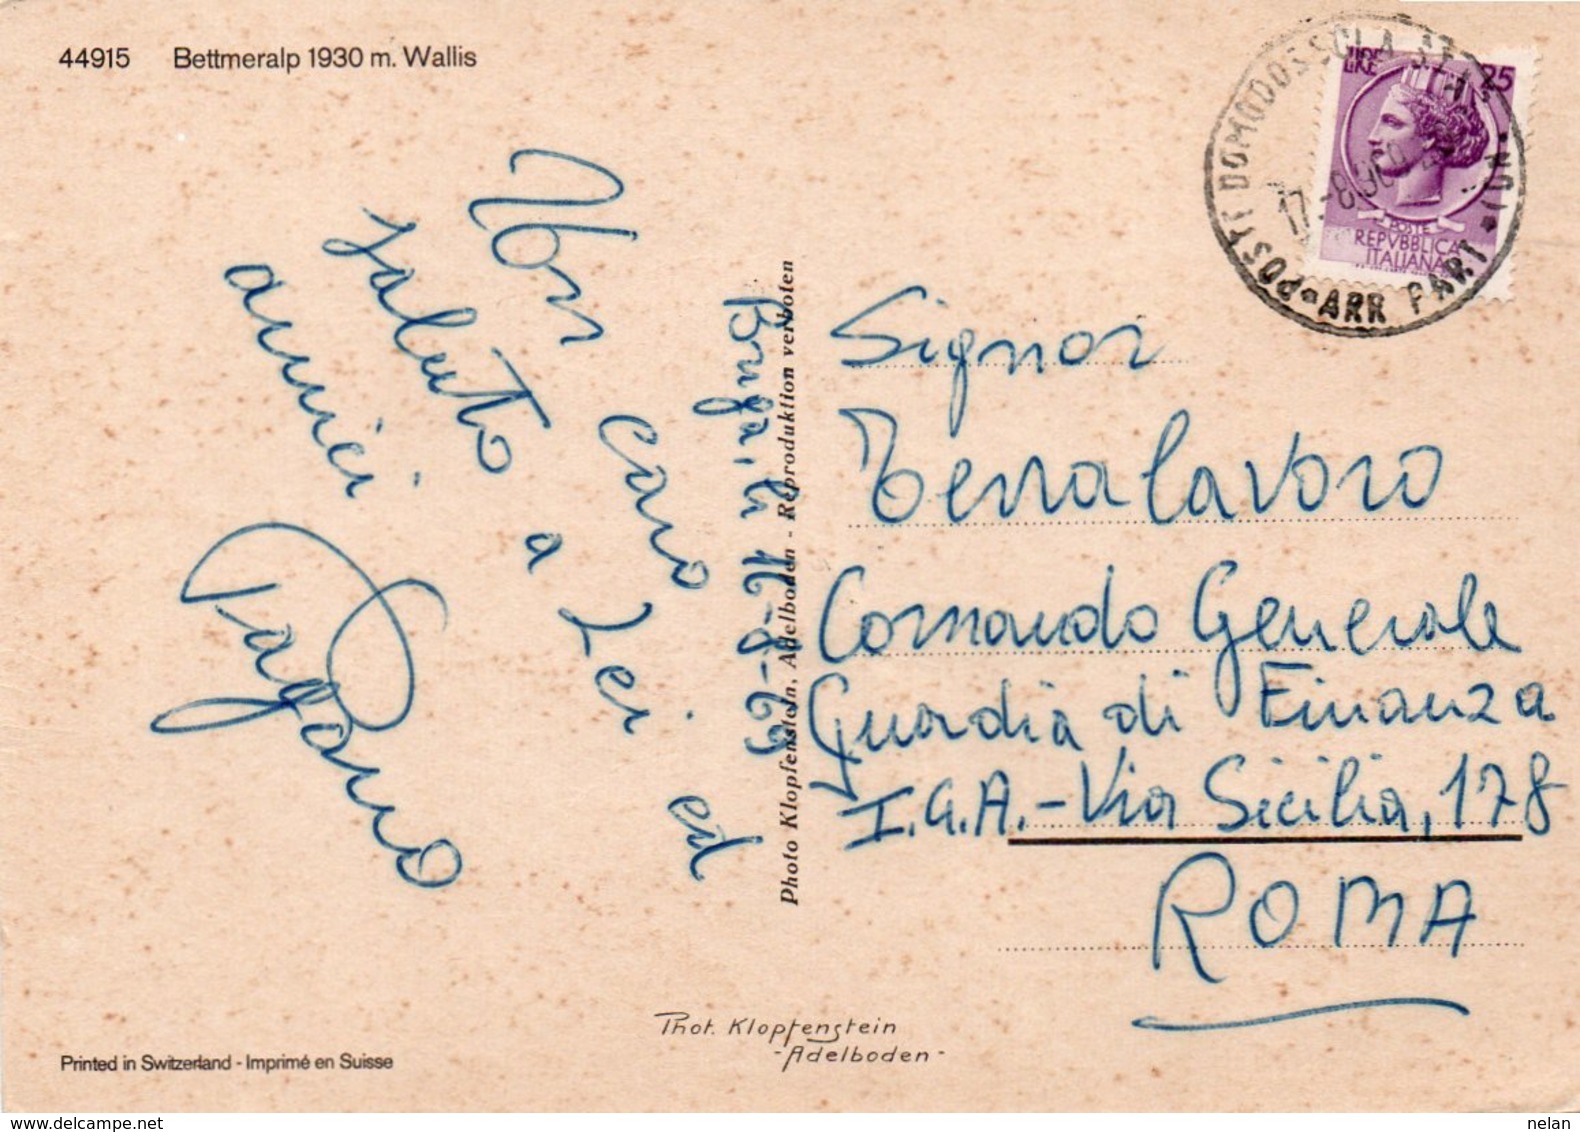 44915 Bettmeralp 1930 m. Wallis
LIRE 25
POSTE
REPVBBLICA
ITALIANA
POSTE DOMODOSSOLA
ARR PART
(NO)
17-8.96
Briga, li 16-8-69
Un caro
saluto a Lei ed
amici.
Pagano
Photo Klopfenstein, Adelboden - Reproduktion verboten
Signor
Terralavoro
Comando Generale
Guardia di Finanza
I.G.A. - Via Sicilia, 178
ROMA
Phot. Klopfenstein
- Adelboden -
Printed in Switzerland - Imprimé en Suisse
www.delcampe.net
nelan